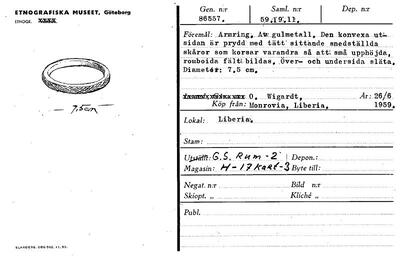 ETNOGRAFISKA MUSEET, Göteborg
7,5cm
Gen. n:r
Saml. n:r
Dep. n:r
86557.
59.19.11.
Föremål: Armring, Av gulmetall. Den konvexa ut-
sidan är prydd med tätt sittande snedställda
skåror som korsar varandra så att små upphöjda,
romboida fält bildas. Över- och undersida släta.
Diameter: 7,5 cm.
O. Wigardt.
År: 26/6
Köp från: Monrovia, Liberia.
1959.
Lokal: Liberia.
Stam:
Utställt: G.S. Rum-2
Depon.:
Magasin: H-17 Kart-3
Byte till:
Negat. n:r
Bild n:r
Skiopt. „
Kliché „
Publ.